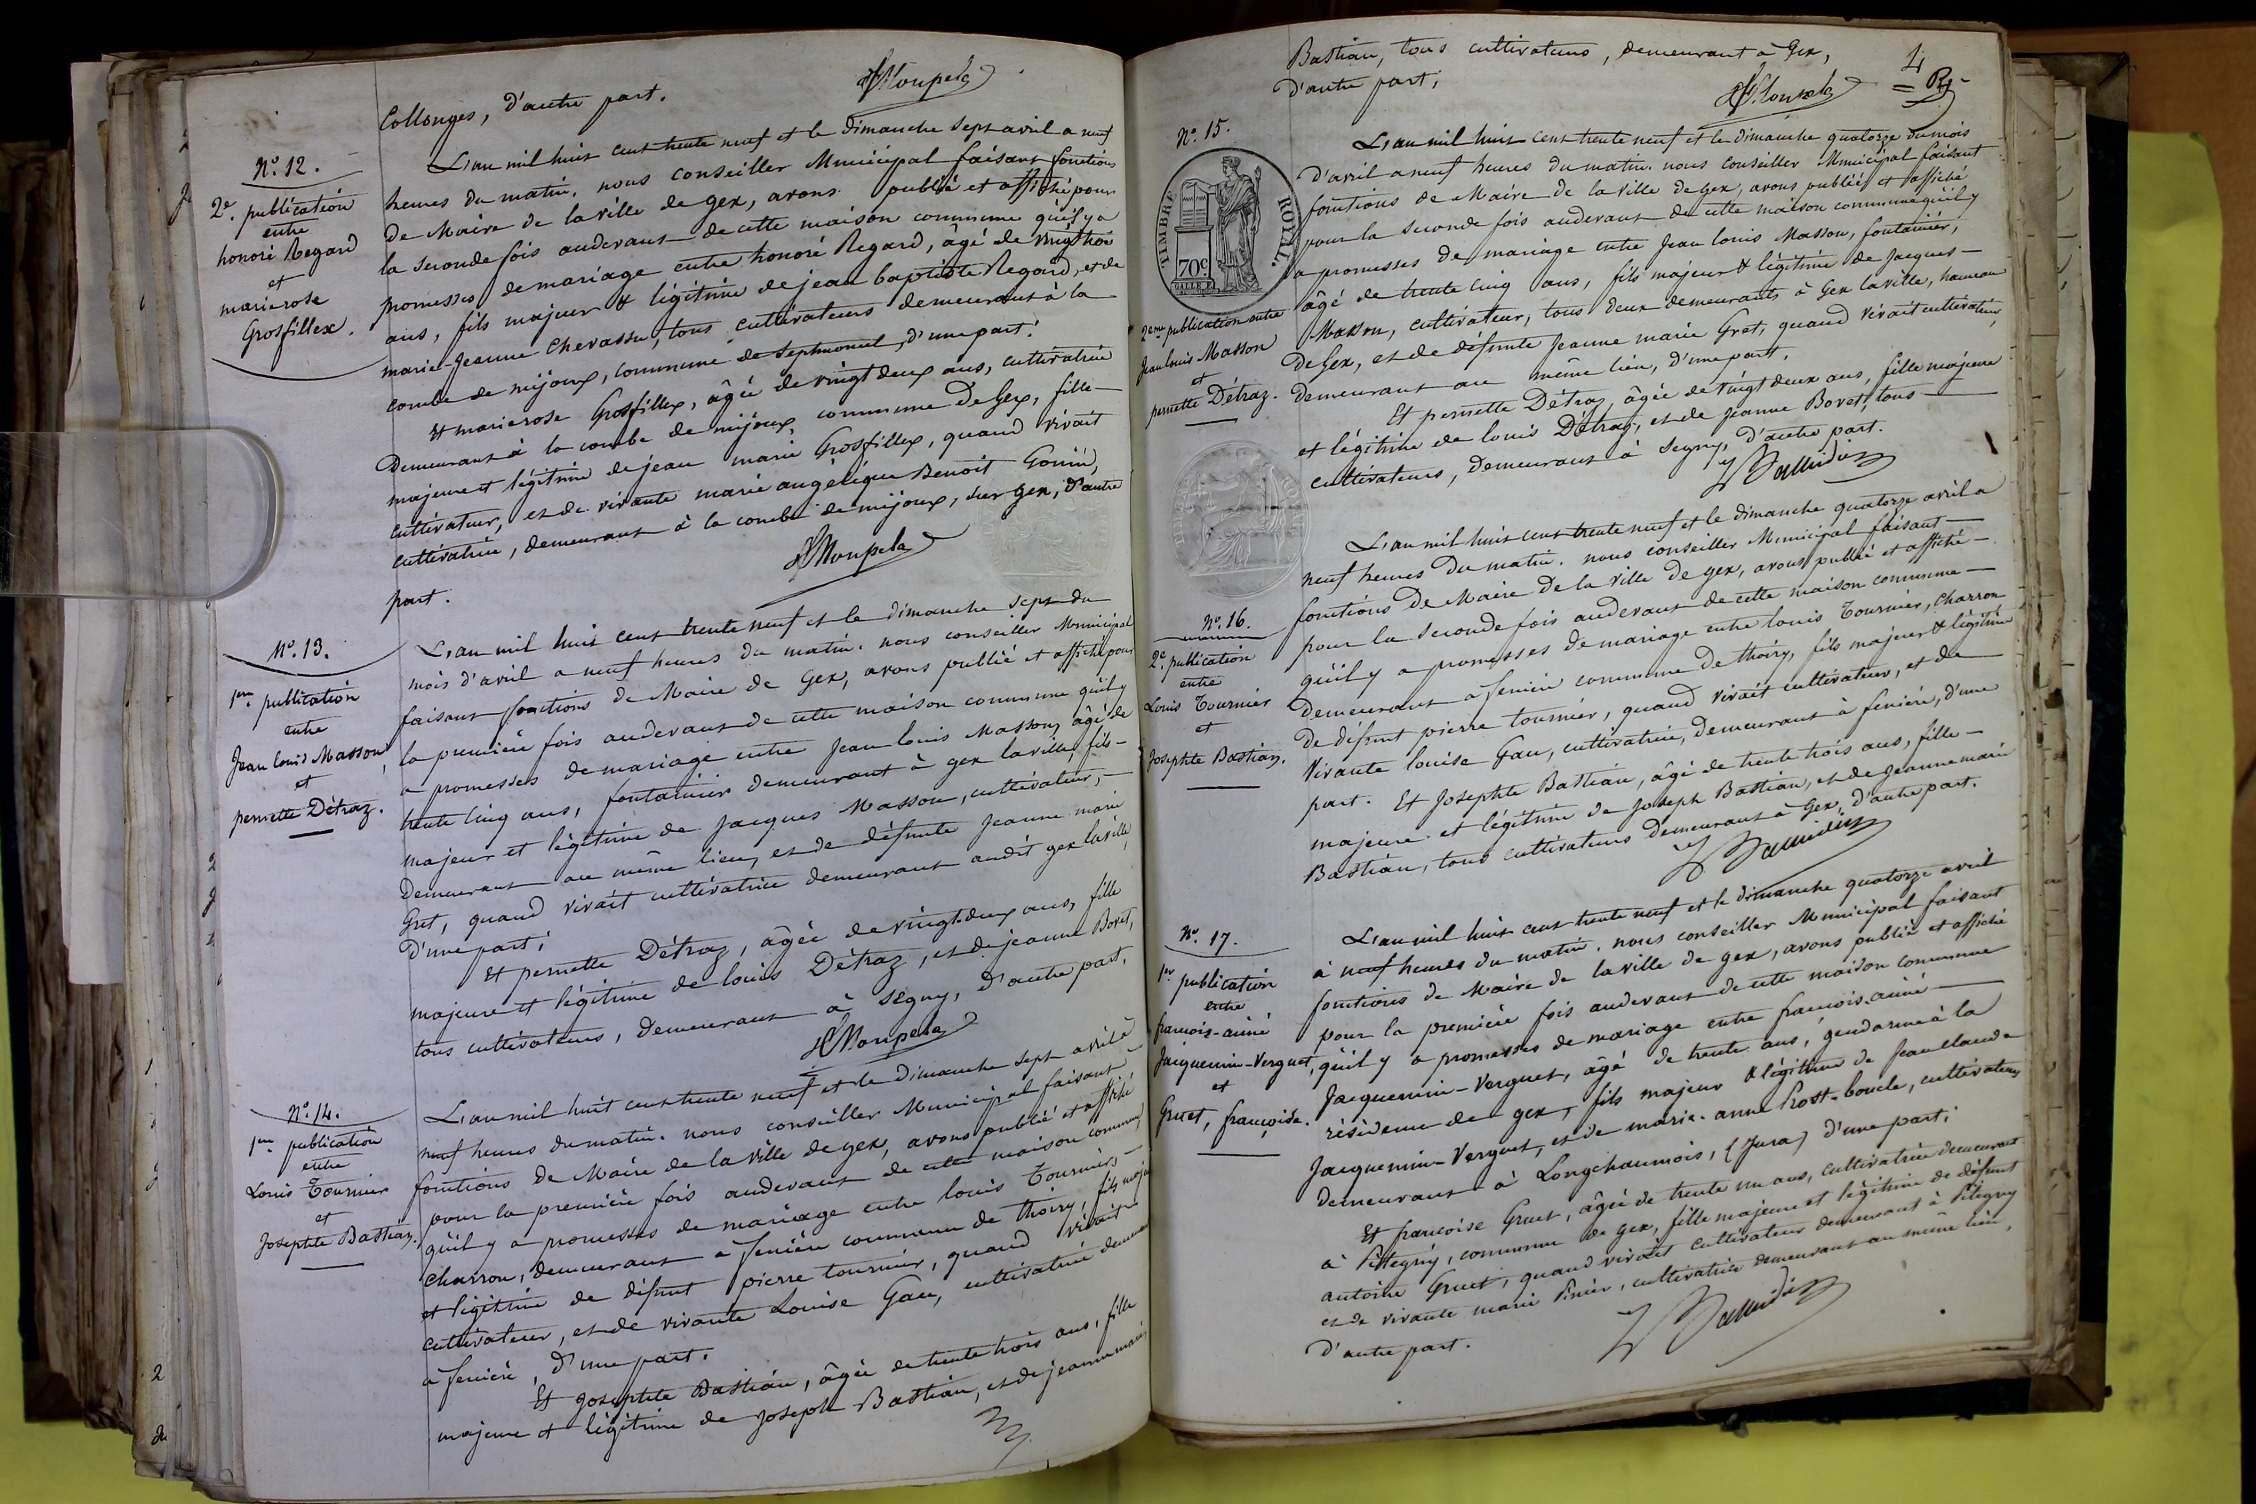 Collonges, d'autre part.
N°. 12.
2e. publication
entre
honoré Regard
et
marie rose
Grosfillex.
L'an mil huit cent trente neuf et le dimanche sept avril a neuf
heures du matin. nous conseiller Municipal faisant fonctions
de Maire de la ville de gex, avons publié et affiché pour
la seconde fois audevant de cette maison commune qu'il y a
promesses de mariage entre honoré Regard, âgé de vingt trois
ans, fils majeur & légitime de jean baptiste Regard, et de
marie-Jeanne Chevassu, tous cultivateurs demeurant à la
combe de mijoux, commune de Septmoncel, d'une part;
Et marie rose Grosfillex, âgée de vingt deux ans, cultivatrice
demeurant à la combe de mijoux, commune De Gex, fille
majeure et légitime de jean marie Grosfillex, quand vivait
cultivateur, et de vivante marie angélique Benoit Gonin,
cultivatrice, demeurant à la combe de mijoux, sur gex, d'autre
part.
N°. 13.
1ere publication
entre
Jean louis Masson
et
pernette Détraz.
L'an mil huit cent trente neuf et le dimanche sept du
mois d'avril a neuf heures du matin. nous conseiller Municipal
faisant fonctions de Maire de Gex, avons publié et affiché pour
la première fois audevant de cette maison commune qu'il y
a promesses de mariage entre Jean louis Masson, âgé de
trente cinq ans, fontainier demeurant à gex la ville, fils
majeur et légitime de Jacques Masson, cultivateur,
Demeurant au même lieu, et de défunte Jeanne marie
Gret, quand vivait cultivatrice demeurant audit gex la ville,
D'une part;
Et pernette Détraz, âgée de vingt-deux ans, fille
majeure et légitime de louis Détraz, et de jeanne Bovet,
tous cultivateurs, demeurant à Ségny, d'autre part.
N°. 14.
1ere publication
entre
Louis Tournier
et
Josephte Bastian.
L'an mil huit cent trente neuf et le dimanche sept avril à
neuf heures du matin. nous conseiller Municipal faisant
fonctions de Maire de la ville de gex, avons publié et affiché
pour la première fois audevant de cette maison commune
qu'il y a promesses de mariage entre louis Tournier,
charron, demeurant à feniére commune de thoiry, fils majeur
et légitime de défunt pierre tournier, quand vivait
cultivateur, et de vivante Louise Gau, cultivatrice demeurant
à feniére, d'une part.
Et Josephte Bastian, âgée de trente trois ans, fille
majeure et légitime de Joseph Bastian, et de jeanne marie
Bastian, tous cultivateurs, demeurant à Gex,
d'autre part;
4
N°. 15.
TIMBRE ROYAL.
70c
2eme publication entre
Jean louis Masson
et
pernette Détraz.
L'an mil huit cent trente neuf et le dimanche quatorze du mois
D'avril a neuf heures du matin. nous conseiller Municipal faisant
fonctions de Maire de la ville de gex, avons publié et affiché
pour la seconde fois audevant de cette maison commune qu'il y
a promesses de mariage entre Jean louis Masson, fontainier,
âgé de trente cinq ans, fils majeur & légitime de Jacques
Masson, cultivateur, tous deux demeurants à Gex la ville, hameau
De Gex, et de défunte Jeanne marie Gret, quand vivait cultivatrice,
demeurant au même lieu, d'une part.
Et pernette Détraz, âgée de vingt deux ans, fille majeure
et légitime de louis Détraz, et de Jeanne Bovet, tous
cultivateurs, demeurant à Segny, d'autre part.
N°. 16.
2e. publication
entre
Louis Tournier
et
Josephte Bastian.
L'an mil huit cent trente neuf et le dimanche quatorze avril a
neuf heures du matin. nous conseiller Municipal faisant
fonctions De Maire De la ville De gex, avons publié et affiché
pour la seconde fois audevant de cette maison commune
qu'il y a promesses de mariage entre louis Tournier, charron
Demeurant a feniére commune de thoiry, fils majeur & légitime
De défunt pierre tournier, quand vivait cultivateur, et de
vivante louise Gau, cultivatrice, Demeurant à feniére, d'une
part. Et Josephte Bastian, âgé de trente trois ans, fille
majeure et légitime de Joseph Bastian, et de jeanne marie
Bastian, tous cultivateurs demeurant à Gex, d'autre part.
N°. 17.
1re publication
entre
françois-aimé
Jacquemin-Verguet,
et
Gruet, françoise.
L'an mil huit cent trente neuf et le dimanche quatorze avril
à neuf heures du matin. nous conseiller Municipal faisant
fonctions de Maire de la ville de gex, avons publié et affiché
pour la première fois audevant de cette maison commune
qu'il y a promesses de mariage entre françois-aimé
Jacquemin-Verguet, âgé de trente ans, gendarme à la
résidence de gex, fils majeur & légitime de Jean claude
Jacquemin-Verguet, et de marie-anne Prost-boucle, cultivateurs
demeurant à Longchaumois, (Jura) d'une part;
Et francoise Gruet, âgée de trente un ans, cultivatrice demeurant
à Pitegny, commune de gex, fille majeure et légitime de défunt
antoine Gruet, quand vivait cultivateur demeurant à Pitegny
et de vivante marie Pinier, cultivatrice demeurant au même lieu,
D'autre part.